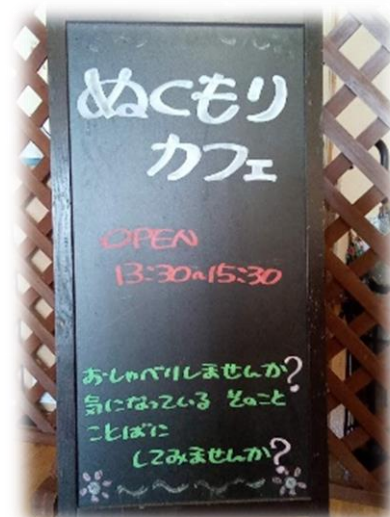 ぬくもり
カフェ
OPEN
13:30~15:30
おしゃべりしませんか?
気になっている そのこと
ことばに
してみませんか?